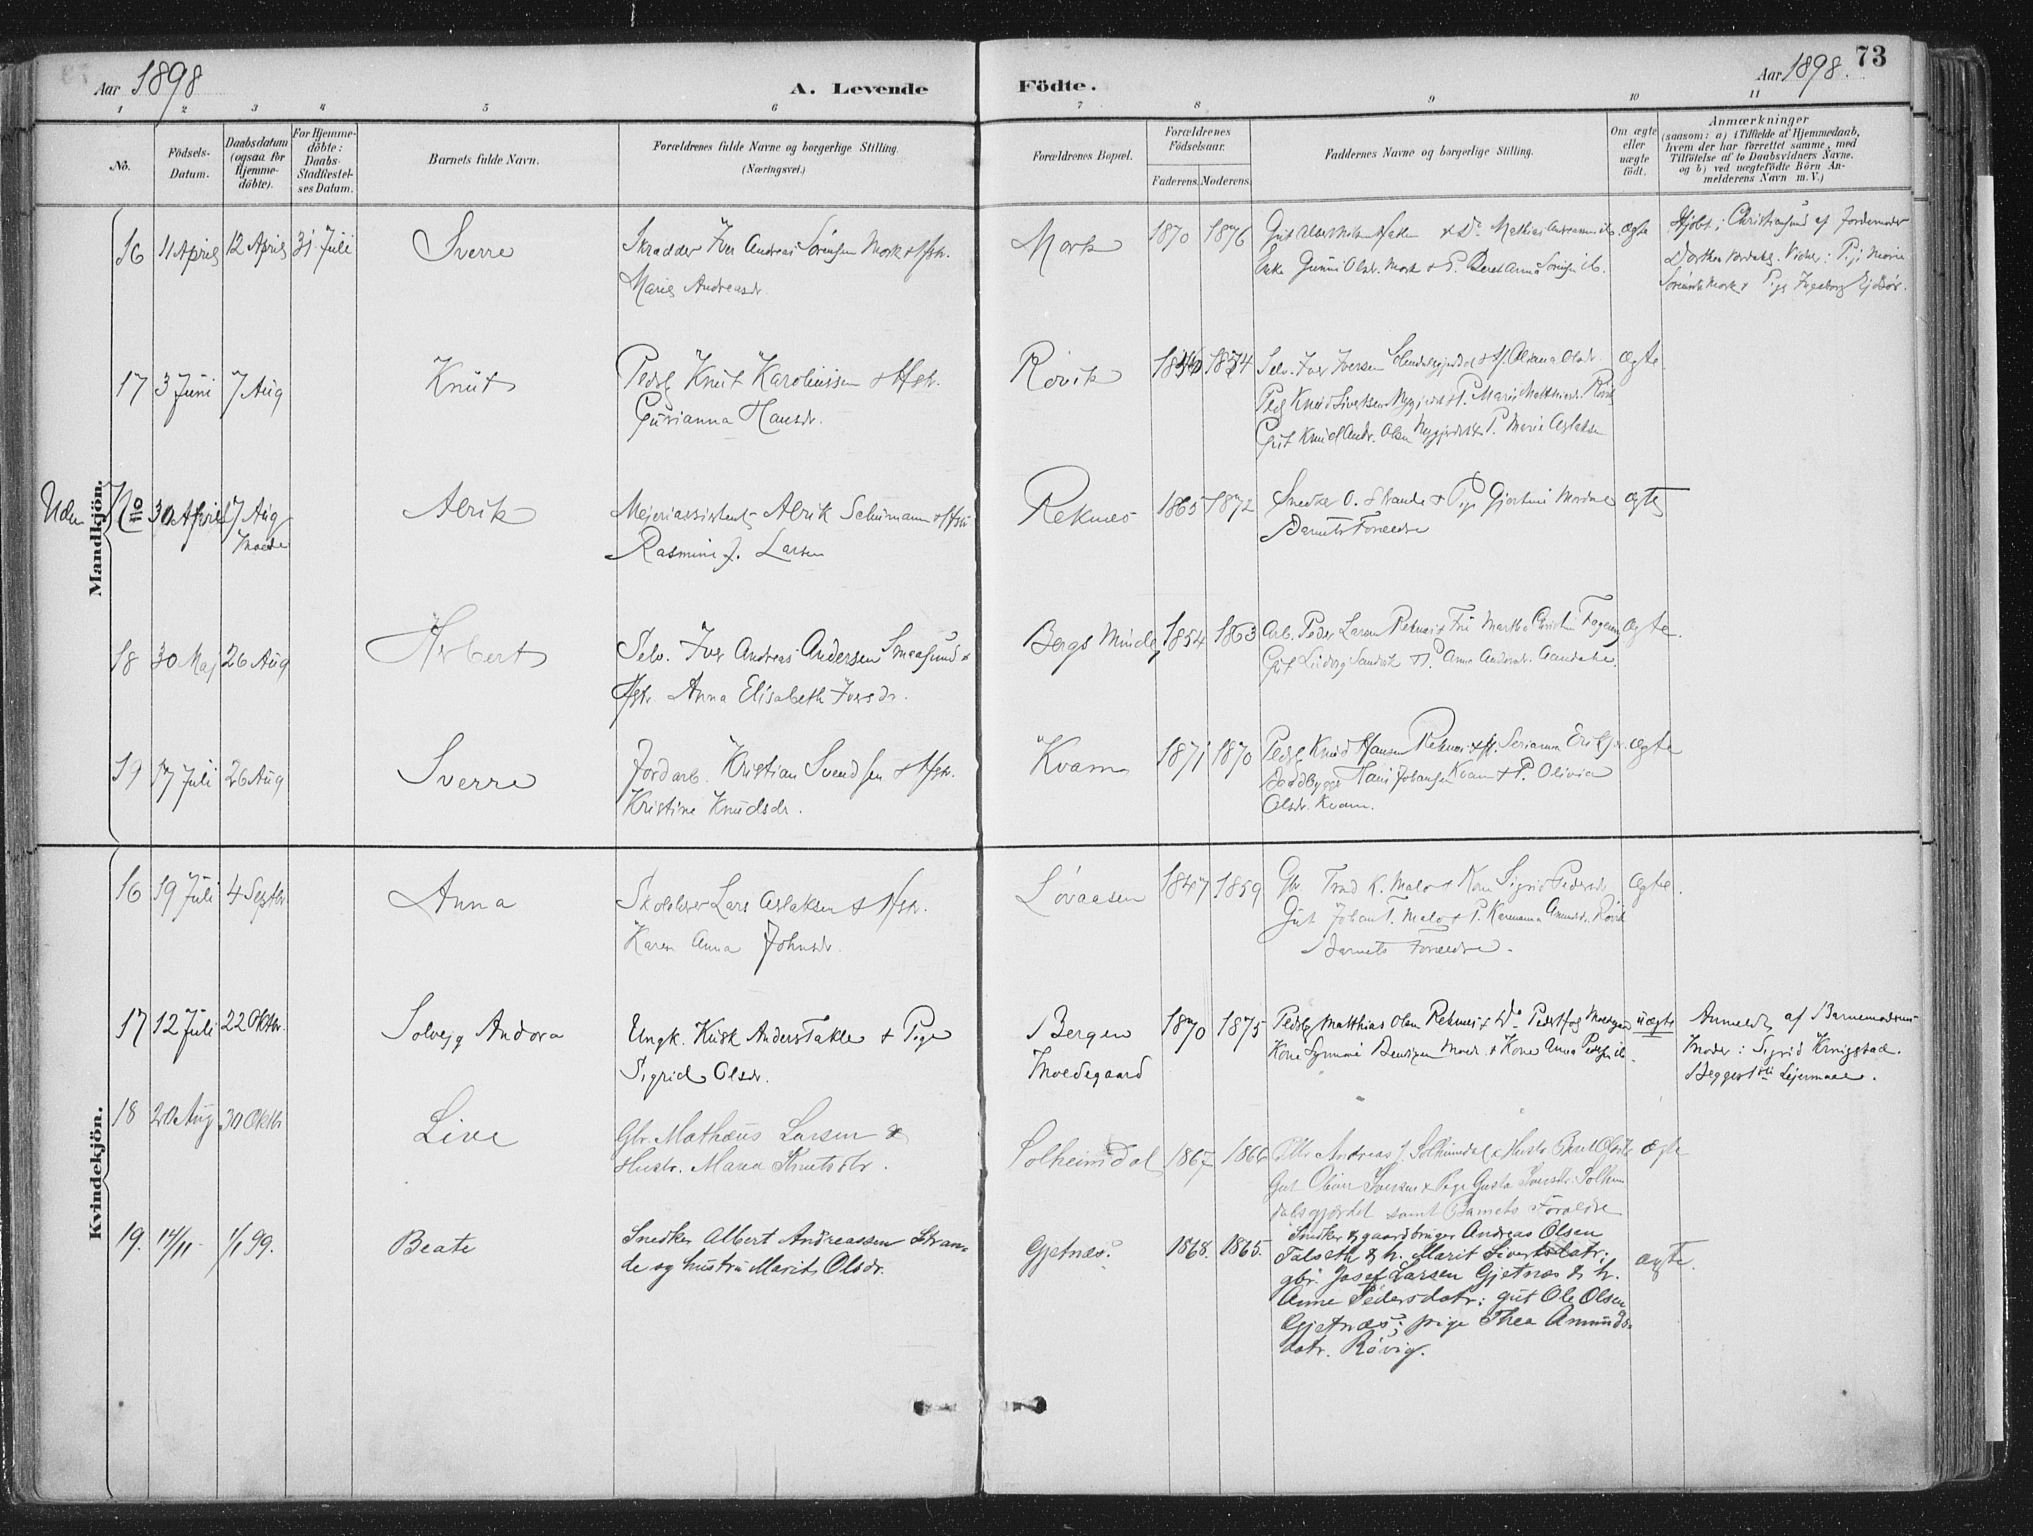 73
Aar 1898
A. Levende
Födte.
Aar 1898.
1 2 3 4 5 6 7 8 9 10 11
No.
Födsels-
Datum.
Daabsdatum
(ogsaa for
Hjemme-
döbte).
For Hjemme-
döbte:
Daabs-
Stadfæstel-
ses Datum.
Barnets fulde Navn.
Forældrenes fulde Navne og borgerlige Stilling.
(Næringsvei.)
Forældrenes Bopæl.
Forældrenes
Födselsaar.
Faderens. Moderens.
Faddernes Navne og borgerlige Stilling.
Om ægte
eller
uægte
födt.
Anmærkninger
(saasom: a) i Tilfælde af Hjemmedaab,
hvem der har forrettet samme, med
Tilföielse af to Daabsvidners Navne,
og b) ved uægtefödte Börn An-
melderens Navn m. V.)
Mandkjön.
16 11 April 12 April 31 Juli Sverre
Skradder Iver Andreas Sörensen Mork & Hstr.
Marie Andreasdr.
Mork 1870 1876
Enke Gunni Olsdr. Mork & P. Beret Anna
ægte
Hjdbt. i Christiansund af Jordemoder
Vidner: Pige Marie
Mork & Pige Ingeborg
17 3 Juni 7 Aug Knut
Pedsl Knut Karolinsen & Hstr.
Gurianna Hansdr.
Rövik 1874
Selv. Iver Iversen
Knud Sivertsen
Gut Knud Andr. Olsen & P. Marie Aslaksen
ægte
Uden No 30 April 7 Aug
Molde
Alrik
Meieriassistent Alrik Schumann & Hstr
Rasmine J. Larsen
Reknes 1865 1872
Snedker O. Strande & Pige Gjertine
Barnets Forældre
ægte
18 30 Maj 26 Aug Herbert
Selv. Iver Andreas Andersen Smeasund &
Hstr. Anna Elisabeth Iversdr.
Bergs Minde 1854 1863
Arb. Peder Larsen Reknes & Fru Martha Christin
Gut Ludvig Sandvik & P. Anna
ægte.
19 17 Juli 26 Aug Sverre
Jordarb. Kristian Svendsen & Hstr.
Kristine Knudsdr.
Kvam 1871 1870
Pedsl Knud Hansen Reknes & H. Serianna
Hans Johansen Kvam & P. Olivia
Olsdr. Kvam.
ægte
Kvindekjön.
16 19 Juli 4 Septbr. Anna
Skolelærer Lars Aslaksen & Hstr.
Karen Anna Johnsdr.
Lövaasen 1847 1859
Gbr. Trond K. Malo & Kone Sigrid Pedersdr
Gut Johan T. Malo & P. Rövik
Barnets Forældre.
ægte.
17 12 Juli 22 Oktbr. Solvejg Andora
Ungk. Kusk Anders Takle & Pige
Sigrid Olsdr.
Bergen
Moldegaard
1870 1875
Pedsl Matthias Olsen Reknes & Do Peder
Kone Synnöve & Kone Anna
uægte
Anmeldt af Barnemoderens
Moder: Sigrid
Begges 1ste Leiermaal.
18 20 Aug 30 Oktbr Live
Gbr. Mathæus Larsen &
Hustr. Maria Knutsdtr.
Solheimsdal 1867 1866
Gbr Andreas J. Solheimsdal & Hustr Beret Olsdtr
Gut Oliver Iversen & Pige Gusta Iversdtr. Solheim-
dalsgjærdet samt Barnets Forældre
ægte
19. 14/11 1/1 99. Beate
Snedker Albert Andreassen Stran-
de og hustru Marit Olsdr.
Gjetnæs. 1868. 1865.
Snedker & gaardbruger Andreas Olsen
Talseth & h. Marit Sivertsdatr.;
gbr. Josef Larsen Gjetnæs & h.
Anne Pedersdatr; gut Ole Olsen
Gjetnæs; pige Thea Amunds-
datr. Rövig.
ægte.